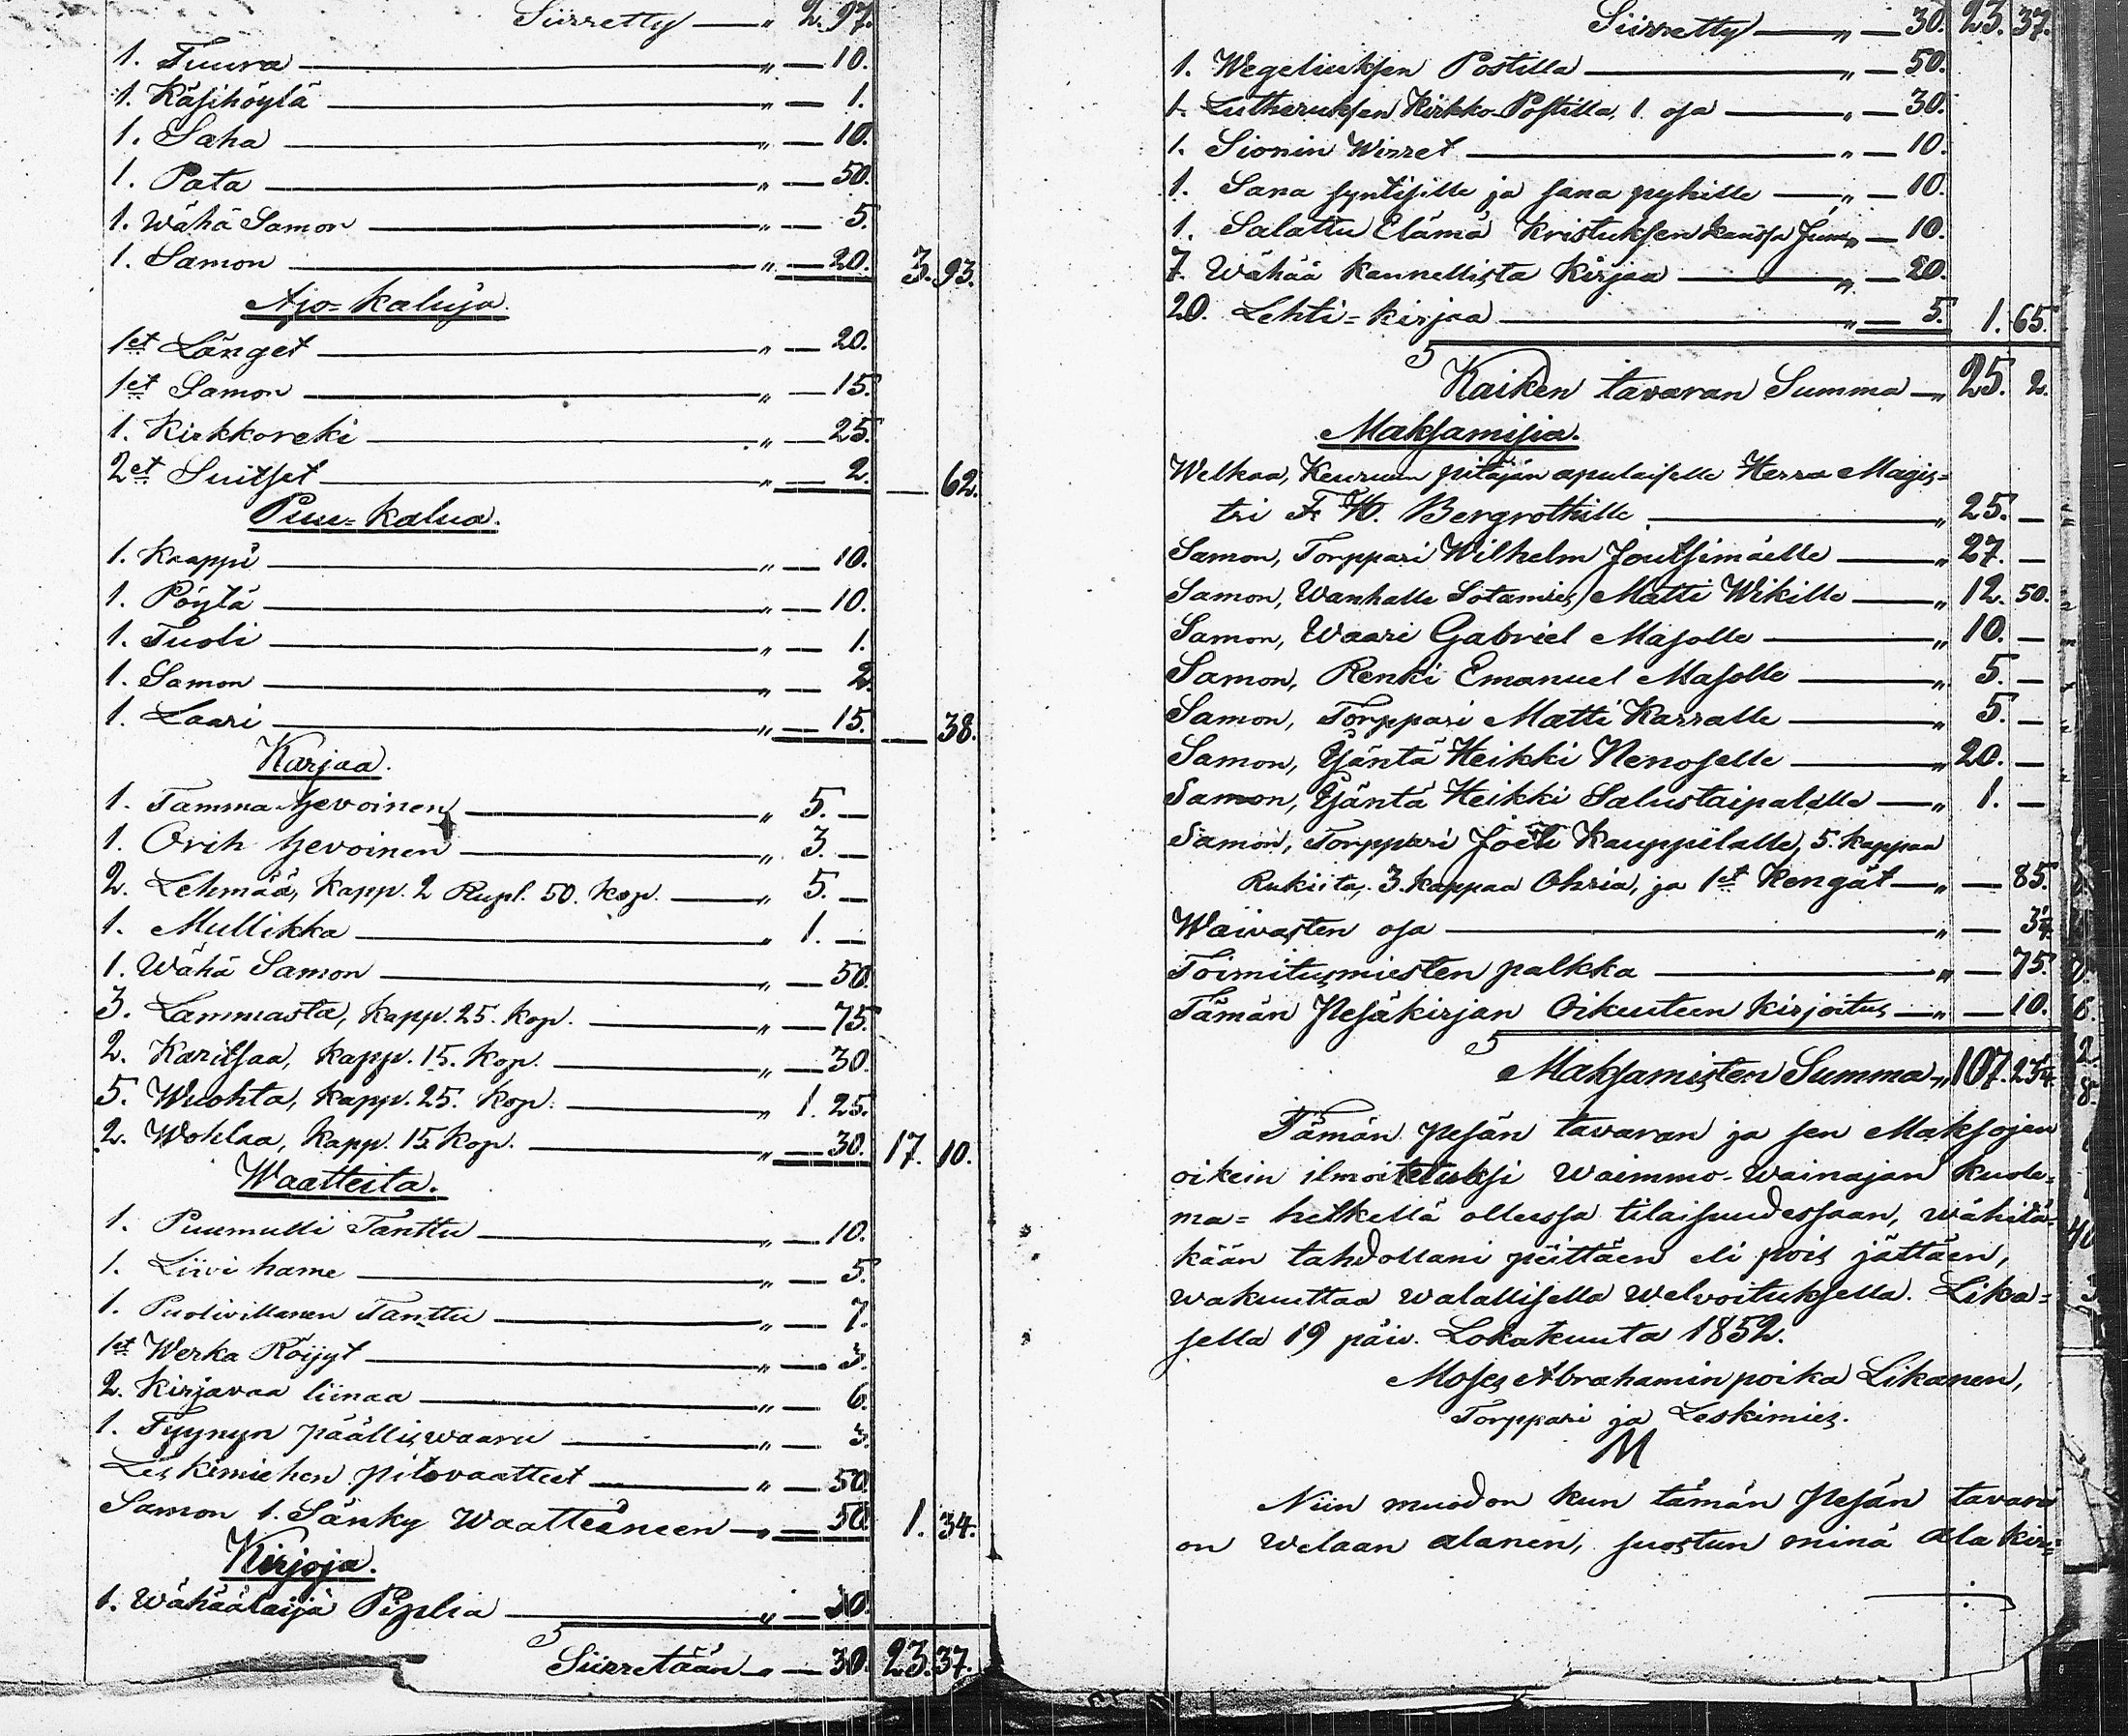 Siirretty — " 2. 97.
1. Tuura — " — 10.
1. Käsihöylä — " — 1.
1. Saha — " — 10.
1. Pata — " — 50.
1. Wähä Samon — " — 5.
1. Samon — " — 20. 3. 93.
Ajo=kaluja.
1et Länget — " — 20.
1et Samon — " — 15.
1. Kirkkoreki — " — 25.
2et Suitset — " — 2. — 62.
Puu=kalua.
1. Kaappi — " — 10.
1. Pöytä — " — 10.
1. Tuoli — " — 1.
1. Samon — " — 2.
1. Laari — " — 15. — 38.
Karjaa.
1. Tamma hevoinen — " 5. —
1. Orih hevoinen — " 3. —
2. Lehmää, kapp. 2 Rupl. 50. kop. — " 5. —
1. Mullikka — " 1. —
1. Wähä Samon — " — 50.
3. Lammasta, kapp. 25. kop. — " — 75.
2. Karitsaa, kapp. 15. kop. — " — 30.
5. Wuohta, kapp. 25. kop. — " 1. 25.
2. Wohlaa, kapp. 15 kop. — " — 30. 17. 10.
Waatteita.
1. Puumulli Tanttu — " — 10.
1. Liivi hame — " — 5.
1. Puolivillanen Tanttu — " — 7.
1et Werka Röijyt — " — 3.
2. Kirjavaa liinaa — " — 6.
1. Tyynyn päällis waaru — " — 3.
Leskimiehen pitovaatteet — " — 50.
Samon 1. Sänky Waatteineen — " — 50. 1. 34.
Kirjoja.
1. Wähäälaija Piplia — " — 30.
Siirretään — " — 30. 23. 37.
Siirretty — " — 30. 23. 37.
1. Wegeliuksen Postilla — " — 50.
1. Lutheruksen Kirkko-Postilla, 1. osa — " — 30.
1. Sionin Wirret — " — 10.
1. Sana syntisille ja sana pyhille — " — 10.
1. Salattu Elämä Kristuksen kanssa Jum. " — 10.
7. Wähää kannellista Kirjaa — " — 20.
20. Lehti=kirjaa — " — 5. 1. 65.
Kaiken tavaran Summa — " 25. 2.
Maksamisia.
Welkaa, Keuruun pitäjän apulaiselle Herra Magis=
tri F. W. Bergrothille — " 25. —
Samon, Torppari Wilhelm Joutsimäelle — " 27. —
Samon, Wanhalle Sotamies Matti Wikille — " 12. 50.
Samon, Waari Gabriel Masolle — " 10. —
Samon, Renki Emanuel Masolle — " 5. —
Samon, Torppari Matti Karralle — " 5. —
Samon, Isäntä Heikki Nenoselle — " 20. —
Samon, Isäntä Heikki Salustaipalelle — " 1. —
Samon, Torppari Kauppilalle, 5. kappaa
Rukiita, 3. kappaa Ohria, ja 1et Kengät — " — 85.
Waivasten osa — " — 3¼.
Toimitusmiesten palkka — " — 75.
Tämän Pesäkirjan Oikeuteen kirjoitus — " — 10.
Maksamisten Summa — " 107. 23¼.
Tämän pesän tavaran ja sen Maksojen
oikein ilmoitetuksi Waimmo-Wainajan kuole=
ma=hetkellä ollessa tilaisuudessaan, wähitä=
kään tahdollani peittäen eli pois jättäen,
wakuuttaa walallisella welvoituksella. Lika=
sella 19 päiv. Lokakuuta 1852.
Moses Abrahamin poika Likanen,
Torppari ja Leskimies.
M
Niin muodon kun tämän Pesän tavara
on welaan alanen, suostun minä ala kir=